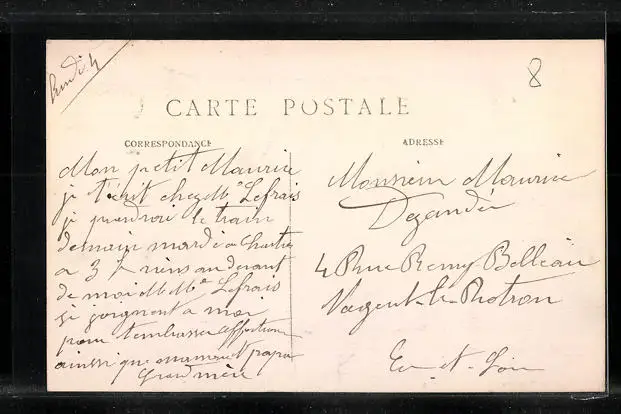 Lundi 4
8
CARTE POSTALE
CORRESPONDANCE
ADRESSE
Mon petit Maurice
je t'écrit chez Mme Lefrais
je prendrai le train
demain mardi a Chartres
a 3 h viens au devant
de moi M Mme Lefrais
se joignent a moi
pour t'embrasser affectueu
ainssi que maman et papa
Grand mère
Monsieur Maurice
Dezandée
4 Rue Remy Belleau
Nogent-le-Rotrou
Eu-et-Loir